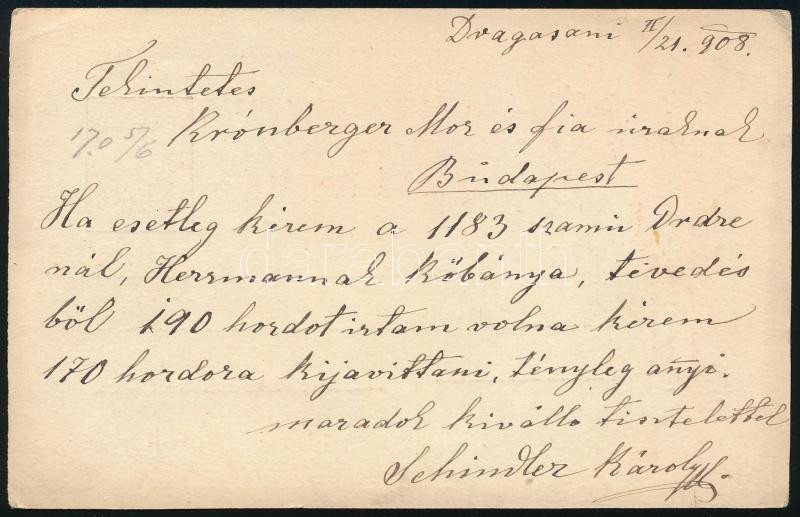 Dragasani II/21. 908.
Tekintetes
Krónberger Mor és fia úraknak
170 5/6
Budapest
Ha esetleg kérem a 1183 szamu Ordre
nál, Herrmannak Kőbánya, tévedés
ből 190 hordot irtam volna kérem
170 hordora kijavittani, tényleg anyi.
maradok kiválló tisztelettel
Schindler Károly
darabanth